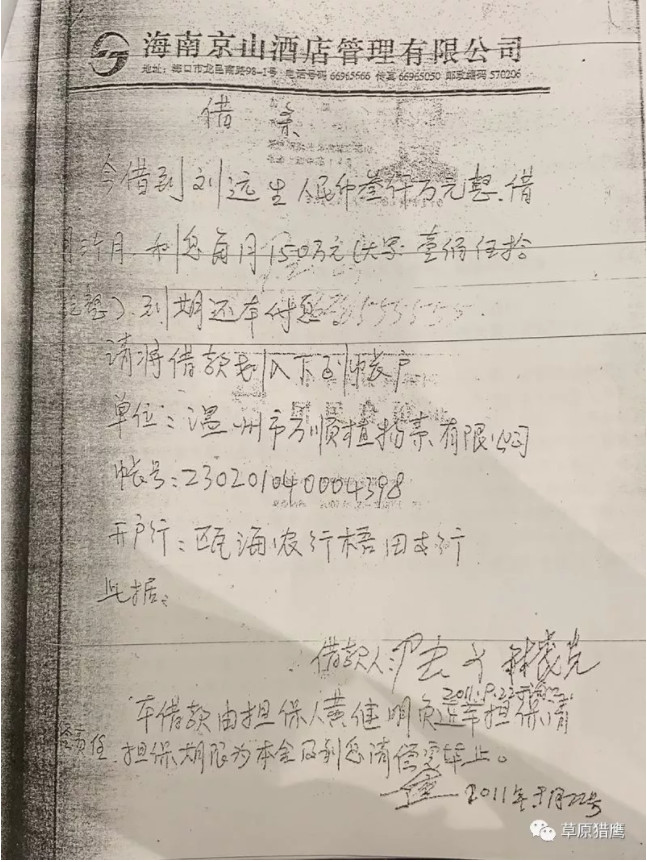 海南京山酒店管理有限公司
地址：海口市龙昆南路98-1号 电话号码 66965666 传真 66965050 邮政编码 570206
借条
今借到刘远生人民币叁仟万元整，借
月 利息每月150万元（大写：壹佰伍拾
整）.到期还本付息
请将借款划入下列帐户
单位：温州市 顺 有限公司
帐号：230201040004398
开户行：瓯海农行梧田支行
此据。
借款人：
2011.9.22
本借款由担保人黄继明负连带担保清
责任 担保期限为本金及利息清偿完毕止。
2011年9月22号
草原猎鹰